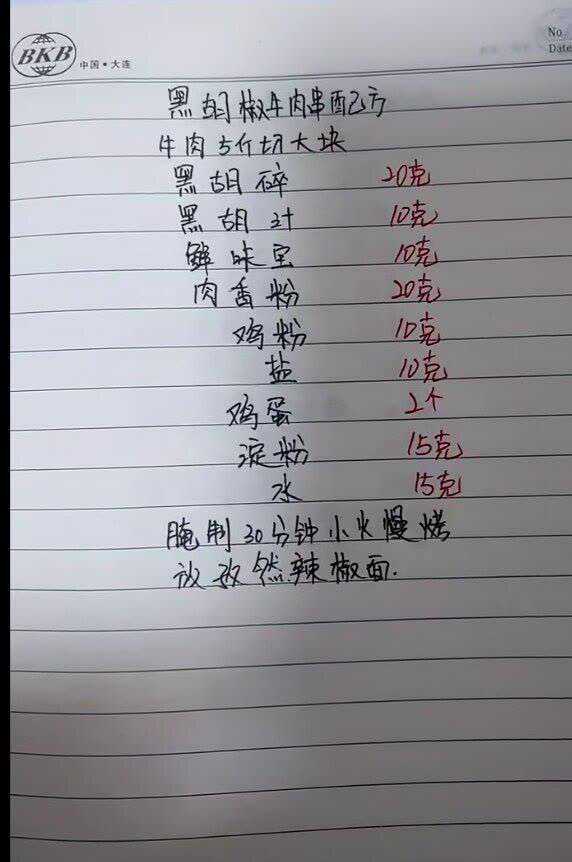 BKB 中国·大连
No.
Date
黑胡椒牛肉串配方
牛肉5斤切大块
黑胡碎 20克
黑胡汁 10克
鲜味宝 10克
肉香粉 20克
鸡粉 10克
盐 10克
鸡蛋 2个
淀粉 15克
水 15克
腌制30分钟小火慢烤
放孜然辣椒面.